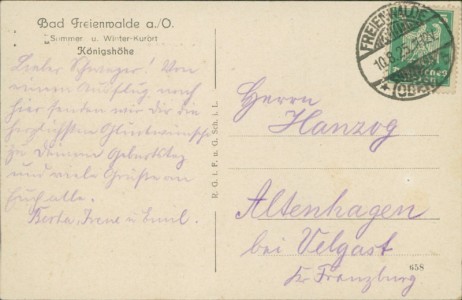 Bad Freienwalde a./O.
Sommer- u. Winter-Kurort
Königshöhe
Lieber Schwager! Von
einem Ausflug nach
hier senden wir dir die
herzlichsten Glückwünsche
zu Deinem Geburtstag
und viele Grüße an
Euch alle.
Berta, Irene u. Emil.
R. G. i. F. u. G. Sch. i. L.
FREIENWALDE
(ODER)
Herrn
Hanzog
Altenhagen
bei Velgast
Kr. Franzburg
658